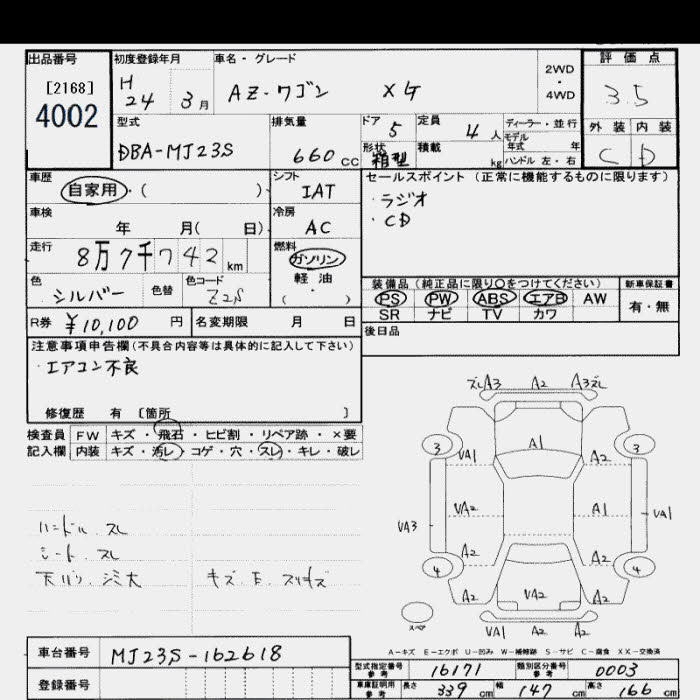 出品番号
[2168]
4002
初度登録年月
H 24 3月
車名・グレード
AZ-ワゴン XG
2WD
・
4WD
評価点
3.5
外装 内装
C D
型式
DBA-MJ23S
排気量
660 CC
ドア 5
定員 4人
形状 箱型
積載 kg
ディーラー・並行
モデル
年式 年
ハンドル 左・右
車歴
自家用・( )
シフト
IAT
セールスポイント (正常に機能するものに限ります)
・ラジオ
・CD
車検
年 月( 日)
冷房
AC
走行
8万7千742 km
燃料
ガソリン
軽油
( )
色
シルバー
色替
色コード
Z2S
装備品 (純正品に限り○をつけてください)
PS PW ABS エアB AW
SR ナビ TV カワ
新車保証書
有・無
R券 ¥10,100 円
名変期限 月 日
後日品
注意事項申告欄(不具合内容等は具体的に記入して下さい)
・エアコン不良
修復歴 有 〔箇所 〕
検査員 FW キズ・飛石・ヒビ割・リペア跡・×要
記入欄 内装 キズ・汚レ・コゲ・穴・スレ・キレ・破レ
ハンドル スレ
シート スレ
ズレA3 A2 A3ズレ
A1
3 3
VA1 A2
VA2 A1
VA3 VA1
A2 A2
4 4
A2 VA2 A2
スペア
VA1 A2 A2
A-キズ E-エクボ U-凹み W-補修跡 S-サビ C-腐食 XX-交換済
車台番号 MJ23S-162618
登録番号
型式指定番号 参考 16171
類別区分番号 参考 0003
車庫証明用 参考 長さ 339 cm 幅 147 cm 高さ 166 cm